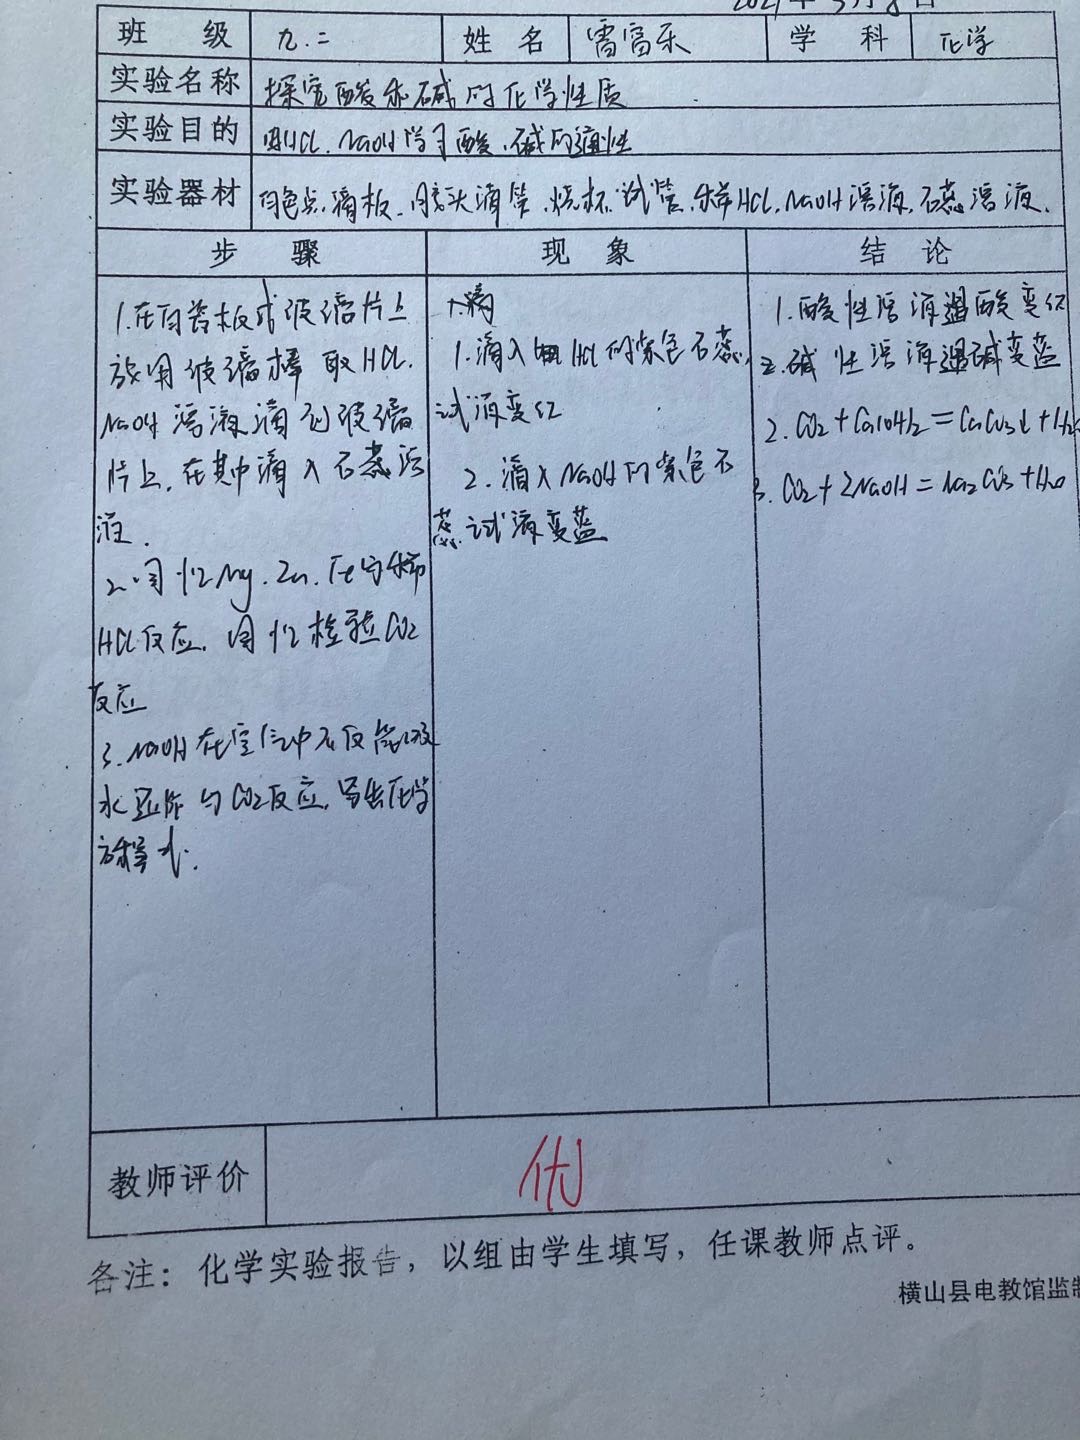 2021年3月8日
班 级 九.二 姓 名 雷富乐 学 科 化学
实验名称 探究酸和碱的化学性质
实验目的 用HCl、NaOH学习酸、碱的通性
实验器材 白色点滴板、胶头滴管、烧杯、试管、稀HCl、NaOH溶液、石蕊溶液、
步 骤 现 象 结 论
1.在白瓷板或玻璃片上
放用玻璃棒取HCl、
NaOH溶液滴到玻璃
片上,在其中滴入石蕊溶
液.
2.用 Mg.Zn.Fe与稀
HCl反应,检验CO2
反应
3.NaOH在空气中不仅能吸
水 与CO2反应,写出化学
方程式.
1.滴
1.滴入HCl的紫色石蕊
试液变红
2.滴入NaOH的紫色石
蕊试液变蓝
1.酸性溶液遇酸变红
2.碱性溶液遇碱变蓝
2.CO2+Ca(OH)2=CaCO3↓+H2
3.CO2+2NaOH=Na2CO3+H2O
教师评价 优
各注：化学实验报告，以组由学生填写，任课教师点评。
横山县电教馆监制